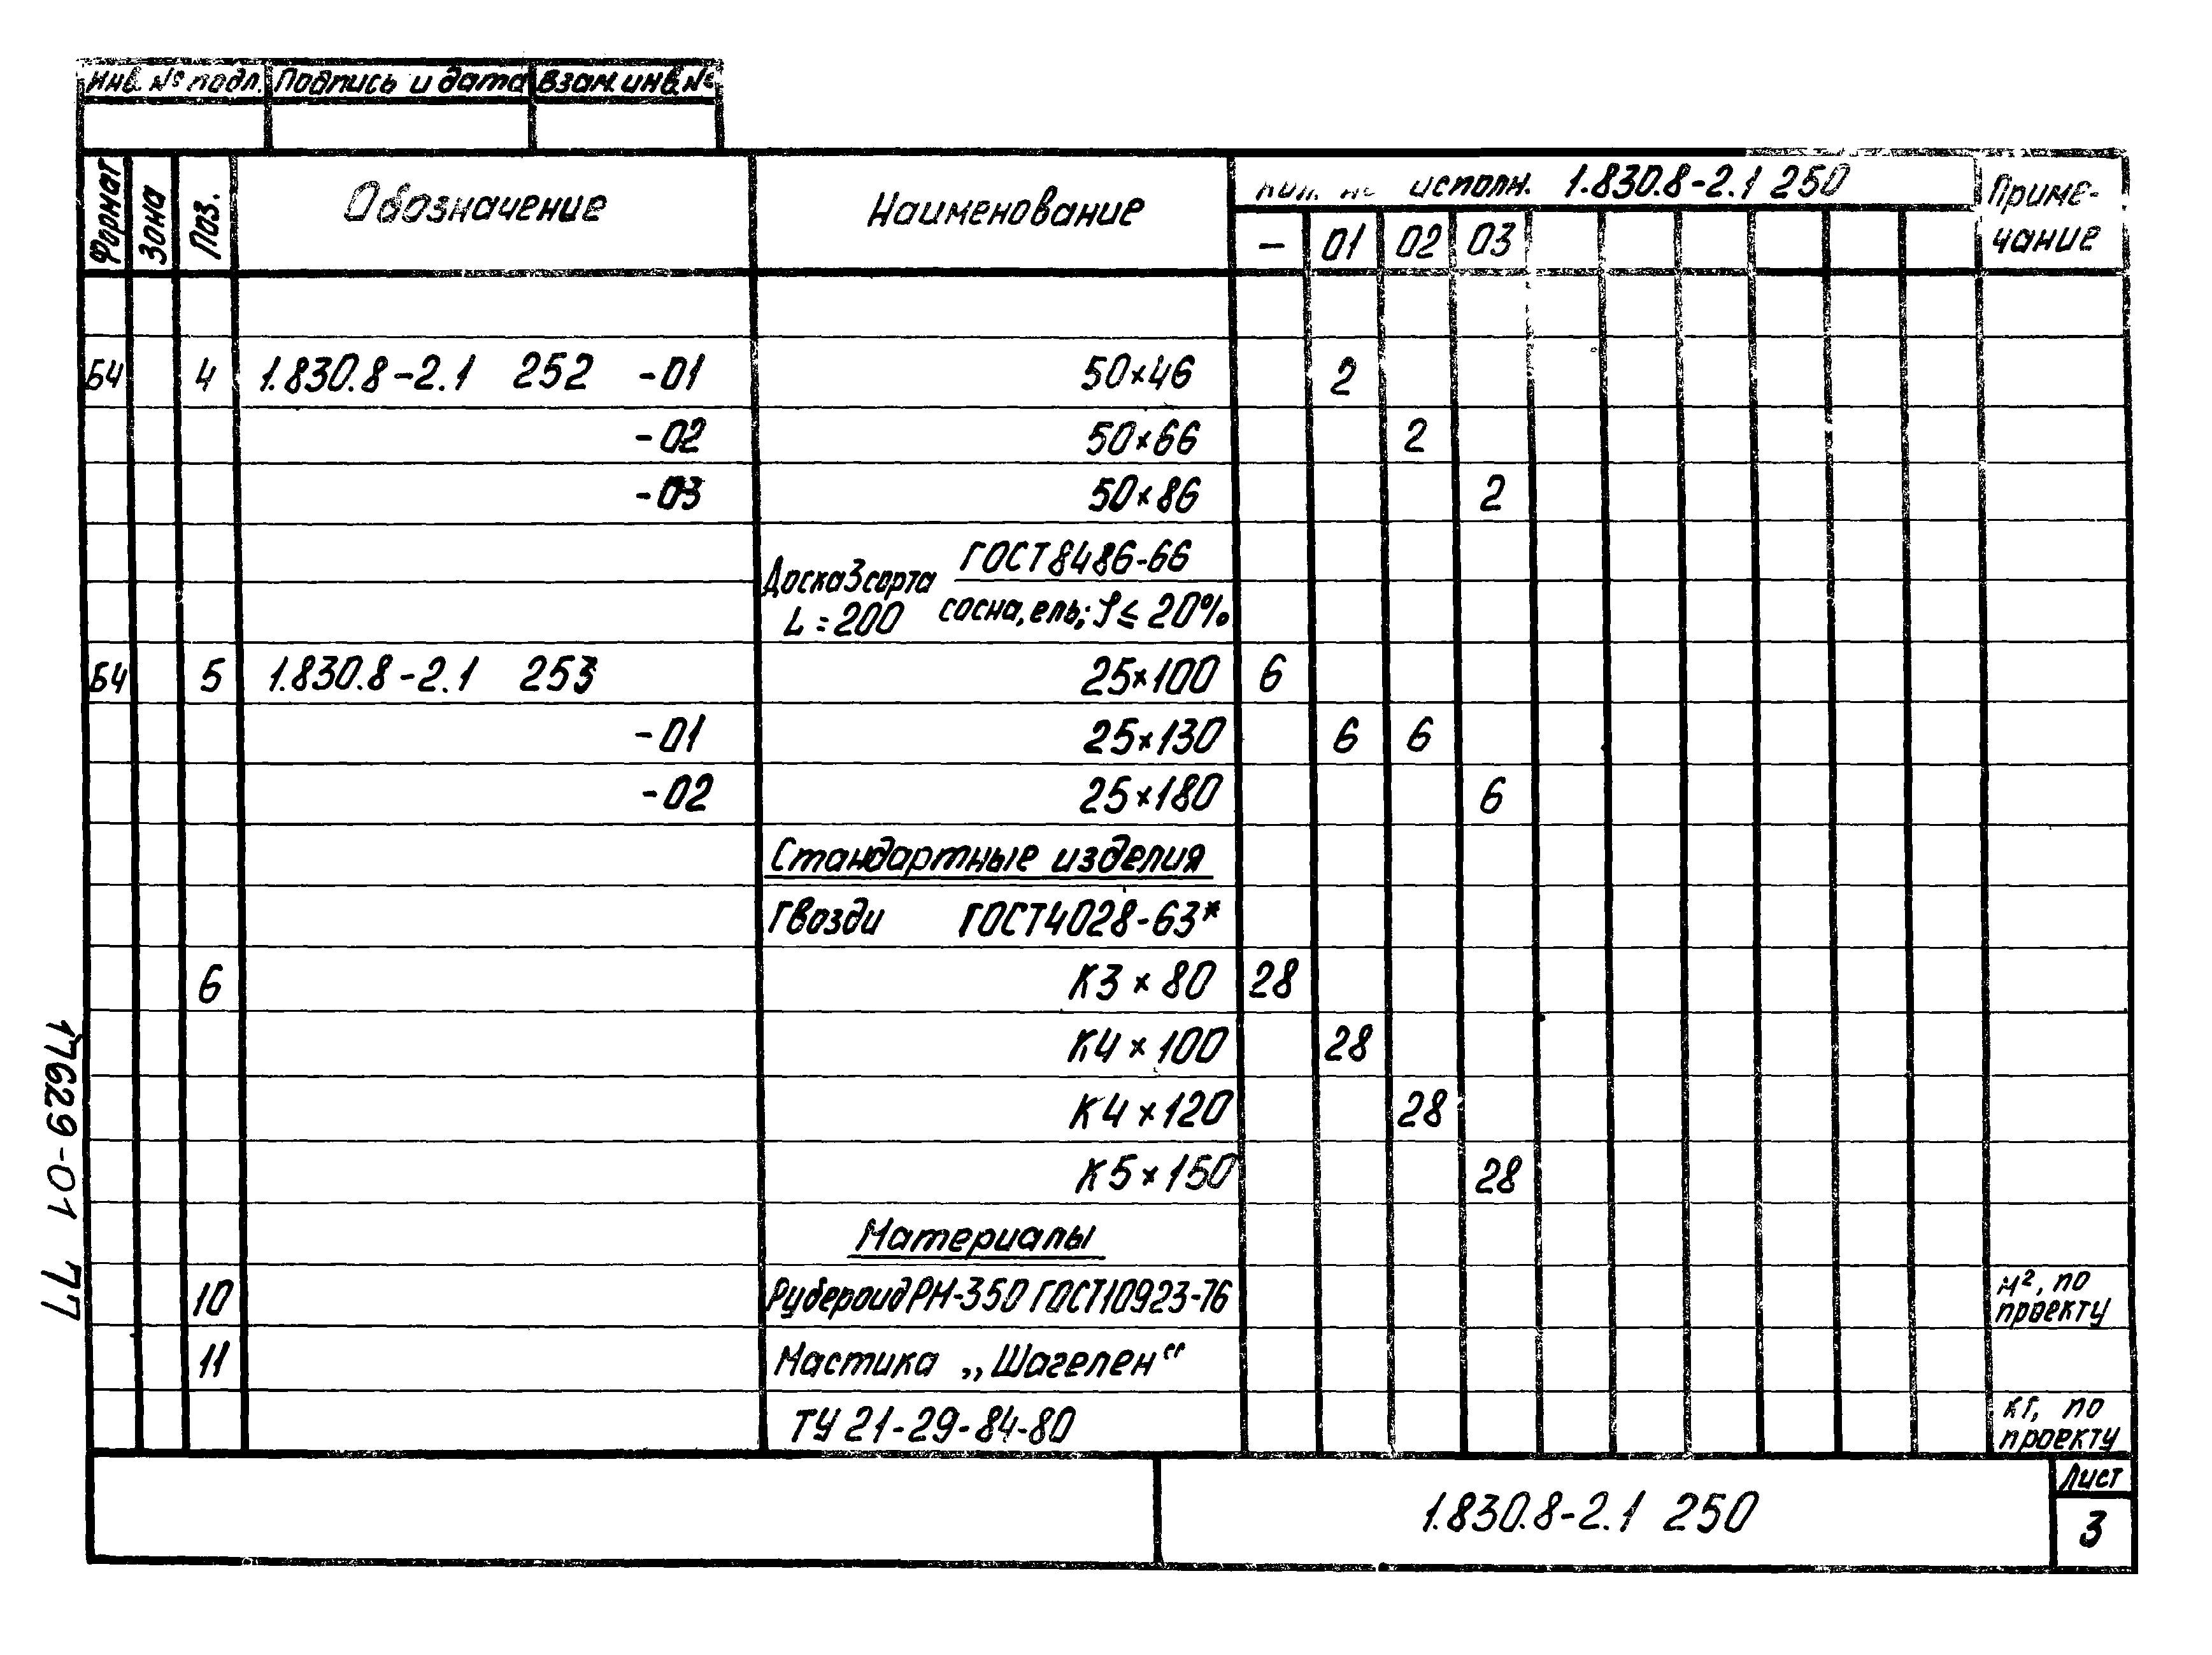 Инв. № подл. Подпись и дата Взам. инв. №
Формат Зона Поз. Обозначение Наименование исполн. 1.830.8-2.1 250 Приме-
чание
— 01 02 03
Б4 4 1.830.8-2.1 252 -01 50×46 2
-02 50×66 2
-03 50×86 2
Доска 3 сорта ГОСТ 8486-66
L=200 сосна, ель; ≤ 20%
Б4 5 1.830.8-2.1 253 25×100 6
-01 25×130 6 6
-02 25×180 6
Стандартные изделия
Гвозди ГОСТ 4028-63*
6 К3×80 28
К4×100 28
К4×120 28
К5×150 28
Материалы
10 Рубероид РМ-350 ГОСТ 10923-76 м², по
проекту
11 Мастика „Шагелен“
ТУ 21-29-84-80 кг, по
проекту
1.830.8-2.1 250
Лист
3
17629-01 77